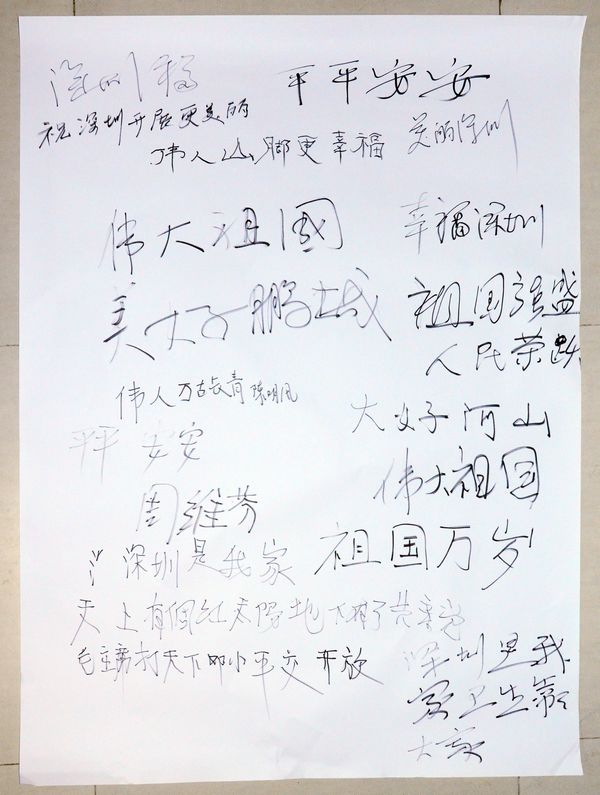 深圳
平平安安
祝深圳开展更美丽
伟人山脚更幸福
美丽深圳
伟大祖國
幸福深圳
美好鹏城
祖国强盛
人民荣跃
伟人万古长青 陈明凤
大好河山
平平安安
伟大祖国
周维芬
祖国万岁
深圳是我家
天上有個红太阳地下有了共产党
毛主席打天下邓小平交开放
深圳是我
家卫生靠
大家